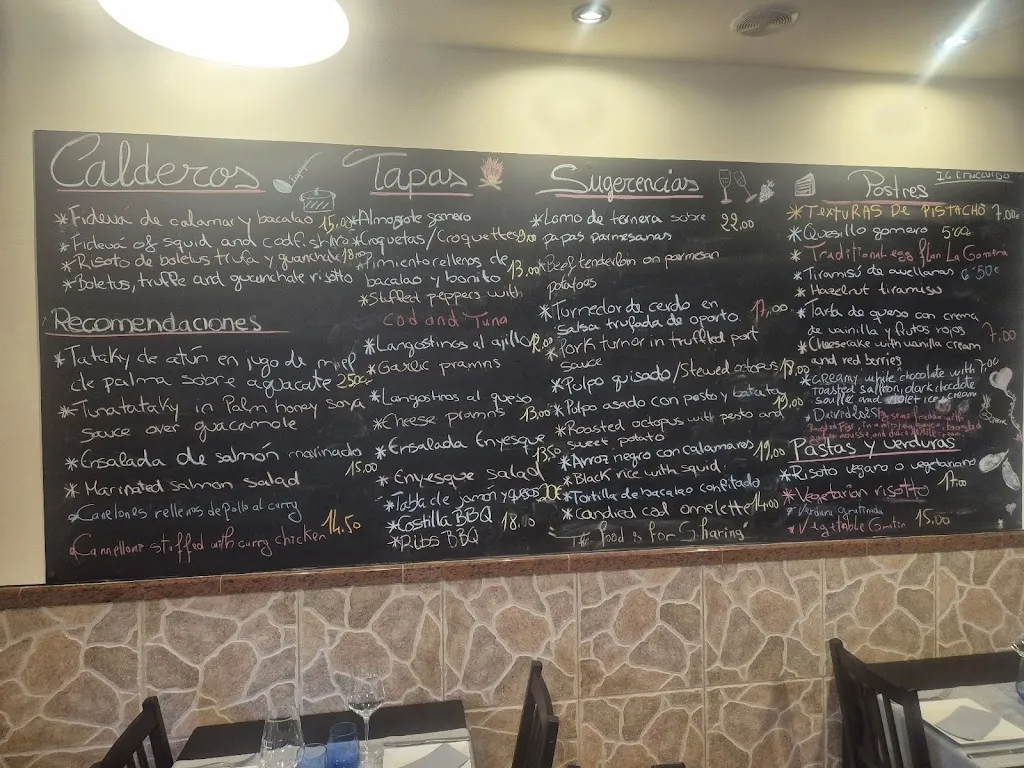 Calderos
* Fideuá de calamar y bacalao 15,00
* Fideuá of squid and codfish
* Risoto de boletus trufa y guanchale 18,00
* Boletus, truffe and guanchale risotto
Recomendaciones
* Tataky de atún en jugo de miel
de palma sobre aguacate
* Tunatataky in Palm honey soya
sauce over guacamole
* Ensalada de salmón marinado
15.00
* Marinated salmon salad
* Canelones rellenos de Pollo al curry
14.50
* Cannellone stuffed with curry chicken
Tapas
* Almogrote gomero
* Croquetas/Croquettes
* Pimiento rellenos de
bacalao y bonito 13,00
* Stuffed peppers with
Cod and Tuna
* Langostinos al ajillo
* Garlic pramns
* Langostinos al queso
* Cheese pramns 13.00
* Ensalada Enyesque
13.50
* Enyesque salad
* Tabla de jamon y queso
* Costilla BBQ 18.00
* Ribs BBQ
Sugerencias
* Lomo de ternera sobre 22,00
papas parmesanas
* Beef tenderloin on parmesan
potatoes
* Turnedor de cerdo en
salsa trufada de oporto 17,00
* Pork turnor in truffled port
sauce
* Pulpo guisado/stewed octopus 18,00
* Pulpo asado con pesto y batata 19,00
* Roasted octopus with pesto and
sweet potato
* Arroz negro con calamares 19,00
* Black rice with squid
* Tortilla de bacalao confitado
* Candied cod omelette 14,00
The food is for Sharing
Postres IGIC INCLUIDO
* TEXTURAS DE PISTACHO 7.00€
* Quesillo gomero 5'00
* Traditional egg flan La Gomera
* Tiramisú de avellanas 6'50€
* Hazelnut tiramisu
* Tarta de queso con crema
de vainilla y frutos rojos 7,00
* Cheesecake with vanilla cream
and red berries
* Creamy white chocolate with 7'00
toasted saffron, dark chocolate
souffle and violet ice cream
Pastas y verduras
* Risoto vegano o vegetariano
* Vegetarian risotto 17.00
* Verdura Gratinada
* Vegetable Gratin 15.00